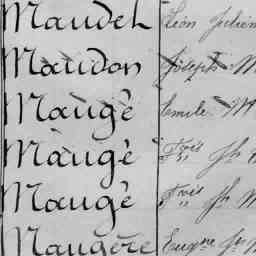 Maudet Léon Julien
Maudon Joseph M
Maugé Emile M
Maugé Fois Jh
Maugé Fois Jh M
Maugère Eugne Jn M